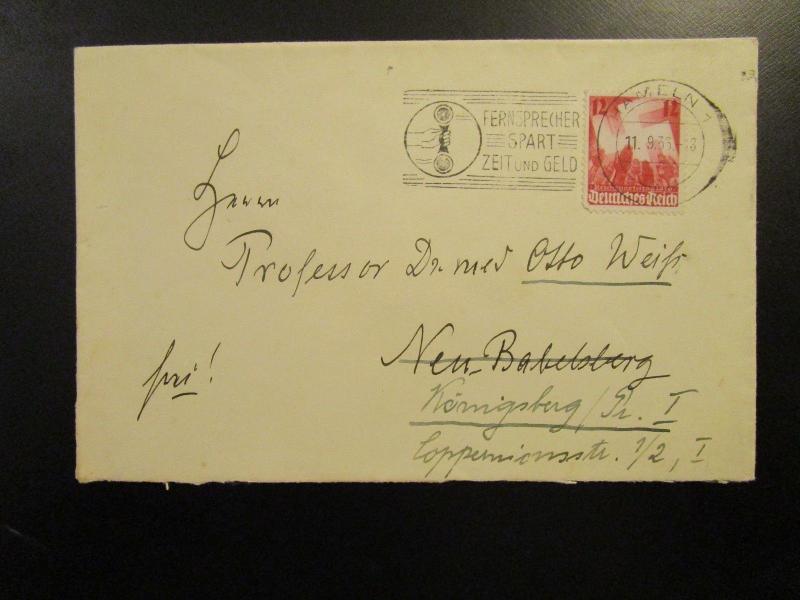 FERNSPRECHER
SPART
ZEIT UND GELD
12 12
Deutsches Reich
HAMELN 1
11. 9.36.-18
Herrn
Professor Dr. med Otto Weiß,
frei!
Neu-Babelsberg
Königsberg/Pr. I
Coppernicusstr. 1/2, I